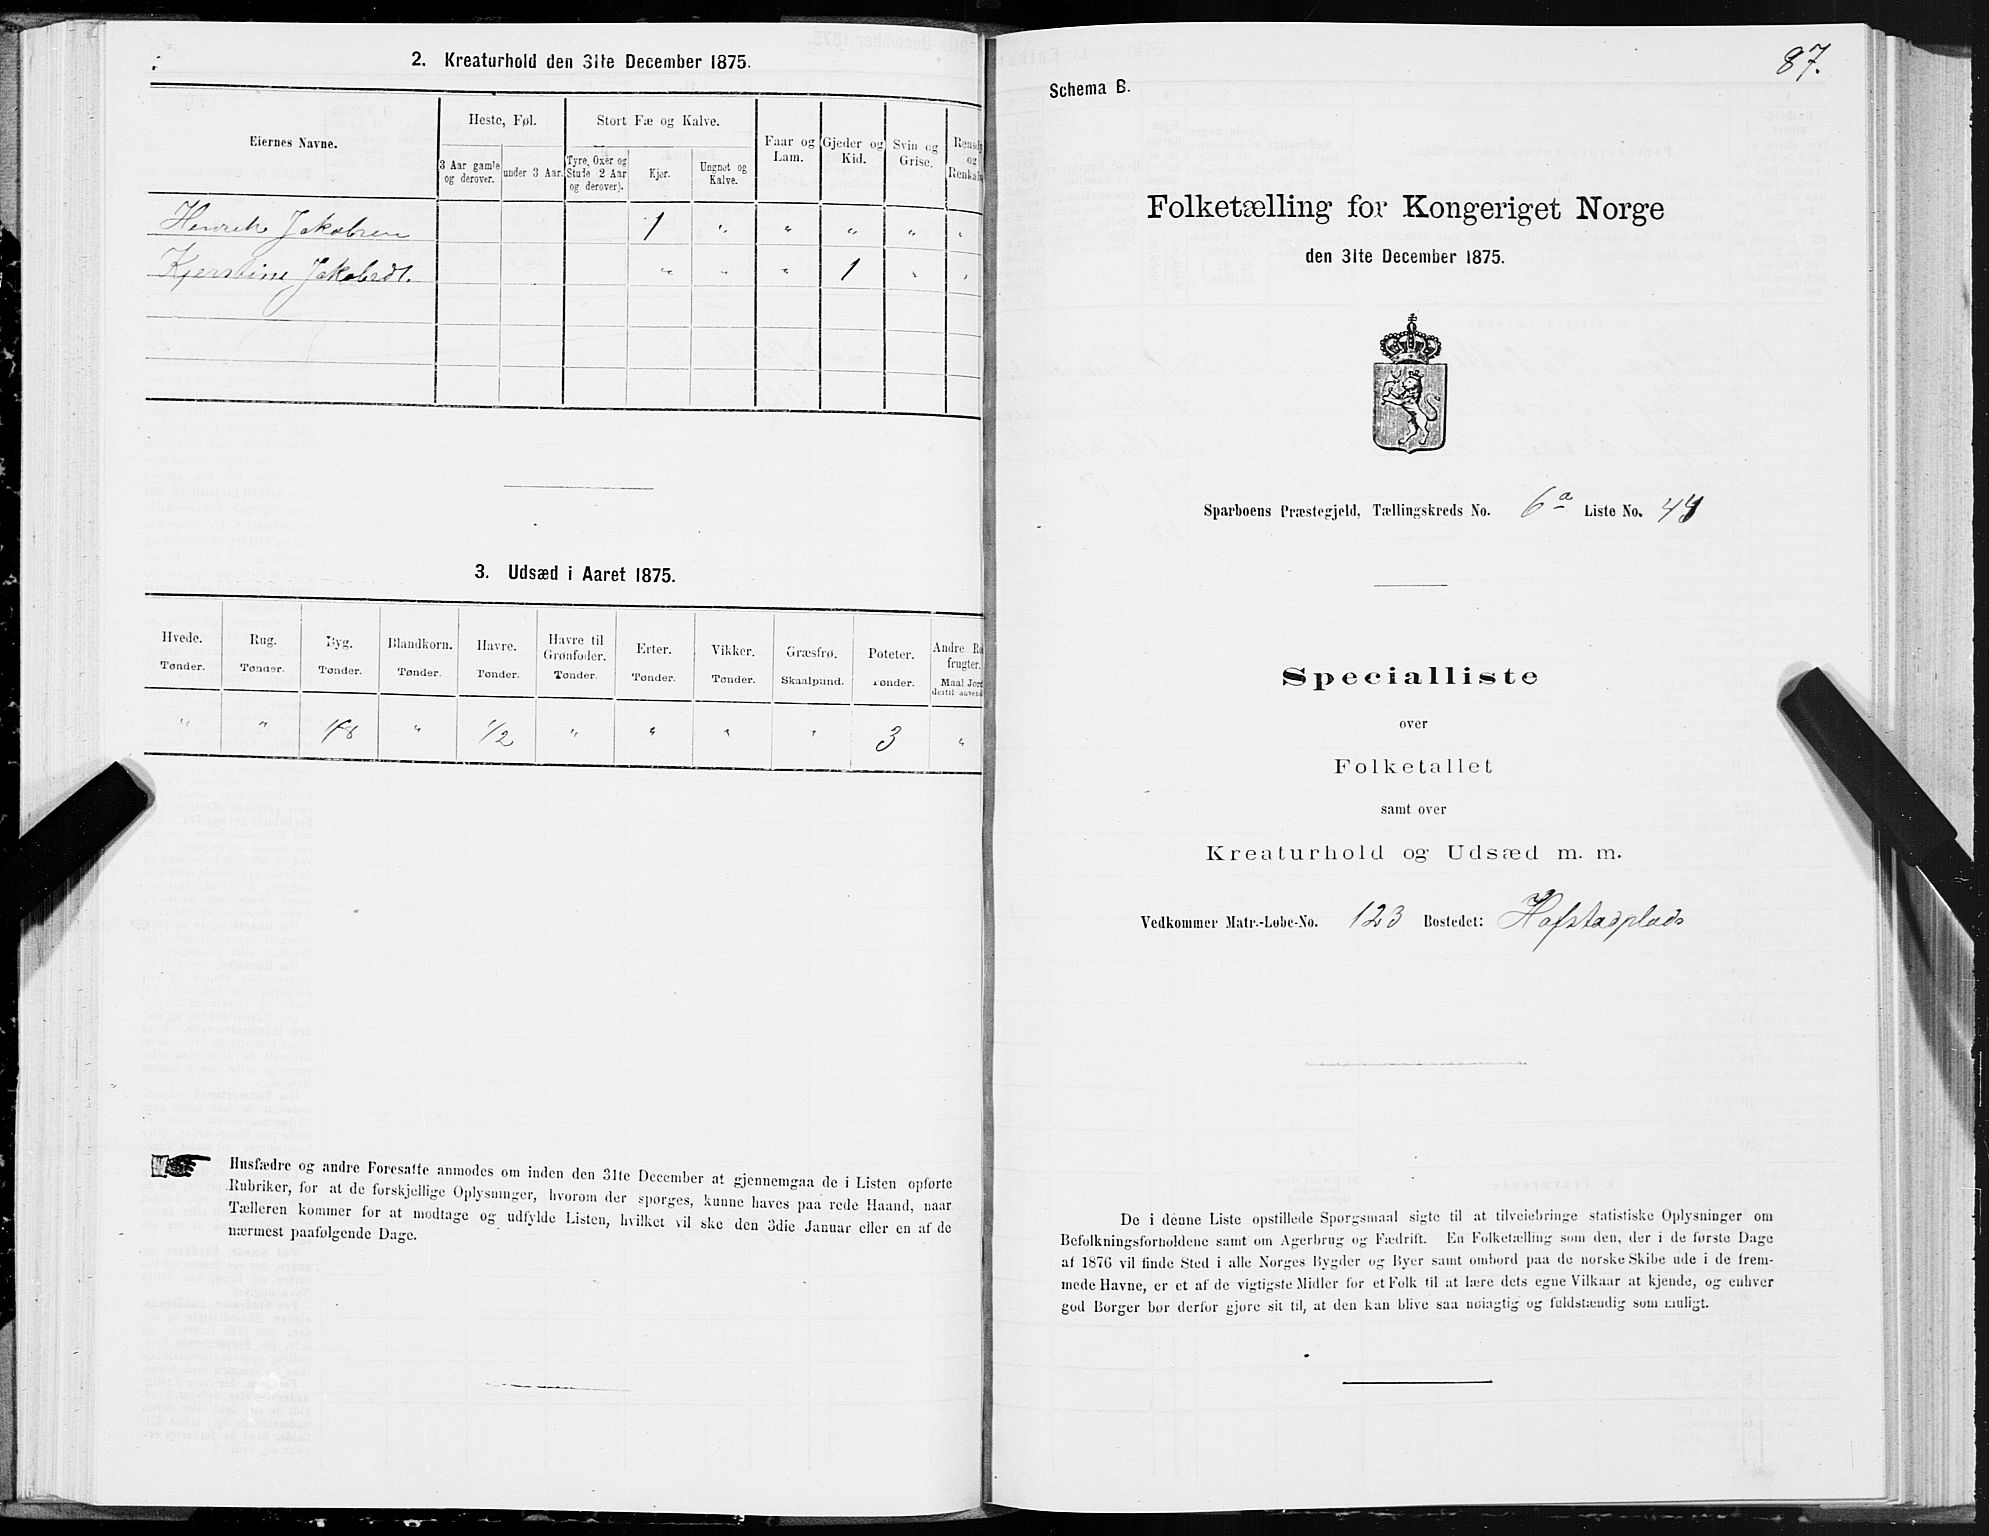 2. Kreaturhold den 31te December 1875.
Eiernes Navne.
Heste, Føl.
Stort Fæ og Kalve.
Faar og Lam.
Gjeder og Kid.
Svin og Grise.
og
3 Aar gamle og derover.
under 3 Aar.
Tyre, Oxer og Stude 2 Aar og derover).
Kjør.
Ungnøt og Kalve.
Henrik Jakobsen 1 " " " " "
Kjerstine Jakobsdt. " " " 1 " "
3. Udsæd i Aaret 1875.
Hvede. Rug. Byg. Blandkorn. Havre. Havre til Grønfoder. Erter. Vikker. Græsfrø. Poteter. Andre
frugter.
Tønder. Tønder. Tønder. Tønder. Tønder. Tønder. Tønder. Tønder. Skaalpund. Tønder. Maal Jord
dertil
" " 1/8 " 1/2 " " " " 3 "
Husfædre og andre Foresatte anmodes om inden den 31te December at gjennemgaa de i Listen opførte
Rubriker, for at de forskjellige Oplysninger, hvorom der spørges, kunne haves paa rede Haand, naar
Tælleren kommer for at modtage og udfylde Listen, hvilket vil ske den 3die Januar eller en af de
nærmest paafølgende Dage.
87.
Schema B.
Folketælling for Kongeriget Norge
den 31te December 1875.
Sparboens Præstegjeld, Tællingskreds No. 6a Liste No.
Specialliste
over
Folketallet
samt over
Kreaturhold og Udsæd m. m.
Vedkommer Matr.-Løbe-No. 123 Bostedet: Hofstadplads
De i denne Liste opstillede Spørgsmaal sigte til at tilveiebringe statistiske Oplysninger om
Befolkningsforholdene samt om Agerbrug og Fædrift. En Folketælling som den, der i de første Dage
af 1876 vil finde Sted i alle Norges Bygder og Byer samt ombord paa de norske Skibe ude i de frem-
mede Havne, er et af de vigtigste Midler for et Folk til at lære dets egne Vilkaar at kjende, og enhver
god Borger bør derfor gjøre sit til, at den kan blive saa nøiagtig og fuldstændig som muligt.